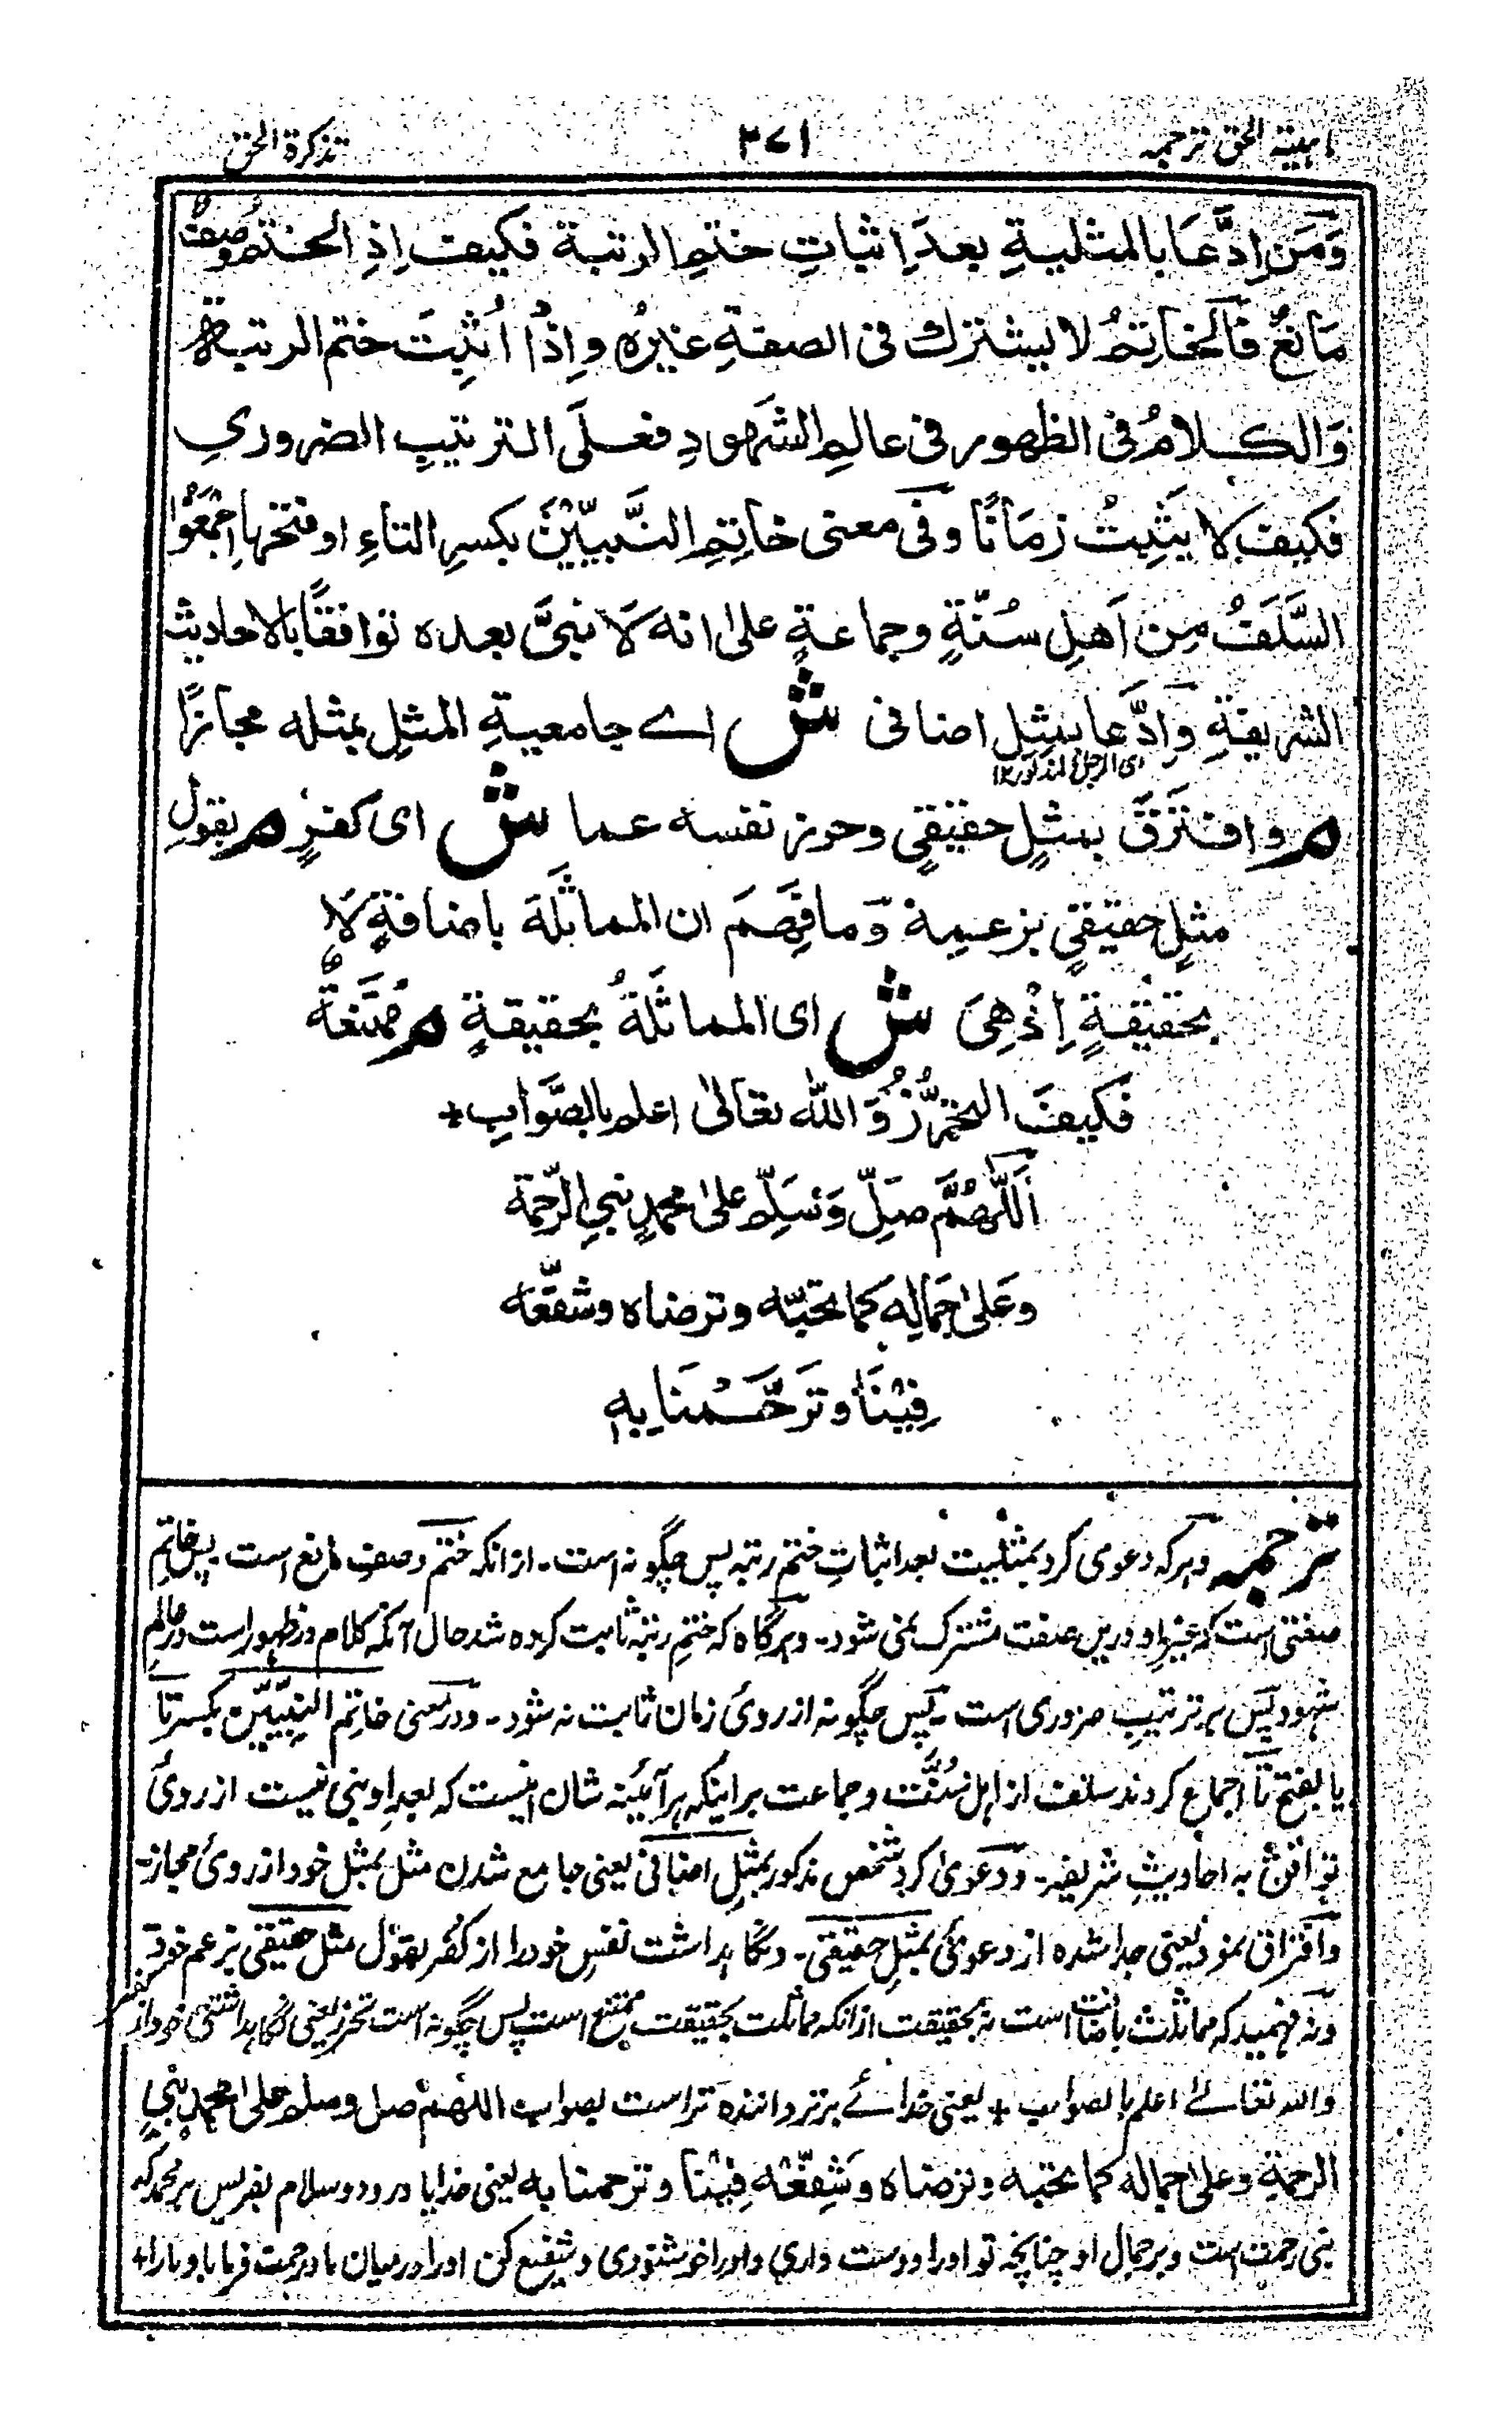 ماہیۃ الحق ترجمہ ۳۷۱ تذکرۃ الحق
وَمَن اِدَّعَا بالمثلیةِ بعدَ اِثباتِ ختمِ الرتبة فکیف اِذِ الختمُ وصفٌ
مَانعٌ فَالخاتِمُ لا یشترك فی الصفةِ غیرُه واِذْا اُثبِتَ ختم الرتبةِ
وَالکلامُ فی الظهور فی عالمِ الشَهودِ فعلَی الترتیبِ الضروري
فکیف لا یَثبِتُ زمَانًا وفی معنی خاتِمِ النَّبیّیْنَ بکسرِ التاءِ او فتحها اِجمَعُوْا
السَّلَفُ مِن اَهلِ سُنّةٍ وجماعةٍ علیٰ انه لَا نبیَّ بعده توافقًا بالاحادیث
الشریفةِ وَاِدَّعا بمثِلِ اضافی ش اے جامعیةِ المثلِ بمثله مجازًا
ای الرجلُ المذکور ۱۲
م وافتَرَقَ بمثلٍ حقیقیٍ وحوز نفسه عما ش ای کفرٍ م بقولِ
مثلٍ حقیقیٍ بزعمہ وَمافَهِمَ ان المماثلَةَ باضافةٍ لَا
بحقیقةٍ اِذْ هِیَ ش ای المماثَلَةُ بحقیقةٍ م مُمتَنعةٌ
فکیفَ التحرُّزُ وَاللّٰه تعَالیٰ اعلم بالصَّوَابِ +
اَللّٰهُمَّ صَلِّ وَسَلِّم علیٰ محمدٍ نبیِ الرّحمة
وعَلیٰ جَمَالِهٖ کما تحبّه وترضاه وشفّعه
فِیْنَا وترحَّمْنَا بِهٖ
ترجمہ وہرکہ دعوی کرد بمثلیت بعد اثباتِ ختمِ رتبہ پس چگونہ است ۔ از انکہ ختم وصفِ مانع است ۔ پس خاتِم
صفتی است کہ غیرِ او درین صفت مشترک نمی شود ۔ وہرگاہ کہ ختمِ رتبہ ثابت کردہ شد حال آنکہ کلام در ظہور است در عالمِ
شہود پس بر ترتیبِ ضروری است ۔ پس چگونہ از روئ زمان ثابت نہ شود ۔ ودر معنی خاتِم النبیّیّن بکسرِ تا
یا بفتحِ تا اجماع کردند سلف از اہلِ سُنَّت وجماعت بر اینکہ ہر آئینہ شان اینست کہ بعدِ او نبی نیست از روئ
توافق بہ احادیثِ شریفہ ۔ ودعویٰ کرد شخص مذکور بمثلِ اضافی یعنی جامع شدن مثل بمثل خود از روئ مجاز ۔
وافتراق نمود یعنی جدا شدہ از دعوئ بمثلِ حقیقی ۔ ونگاہداشت نفسِ خود را از کفر بقول مثل حقیقی بزعم خود
ونہ فہمید کہ مماثلث باضافت است نہ بحقیقت از انکہ مماثلت بحقیقت ممتنع است پس چگونہ است تحرز یعنی نگاہداشتنی خود از کفر
واللہ تعالےٰ اعلم بالصواب + یعنی خدائے برتر دانندہ تر است بصواب اللهم صل وسلم علیٰ محمد نبیِ
الرحمةِ وعلیٰ جماله کما تحبه وترضاه وشفّعه فِیْنَا وترحمنا به یعنی خدایا درود وسلام بفریس بر محمد کہ
نبی رحمت است وبر جمال او چنانچہ تو اورا دوست داری واورا خوشنودی وشفیع کن اورا درمیان ما ورحمت فرما باو مارا +